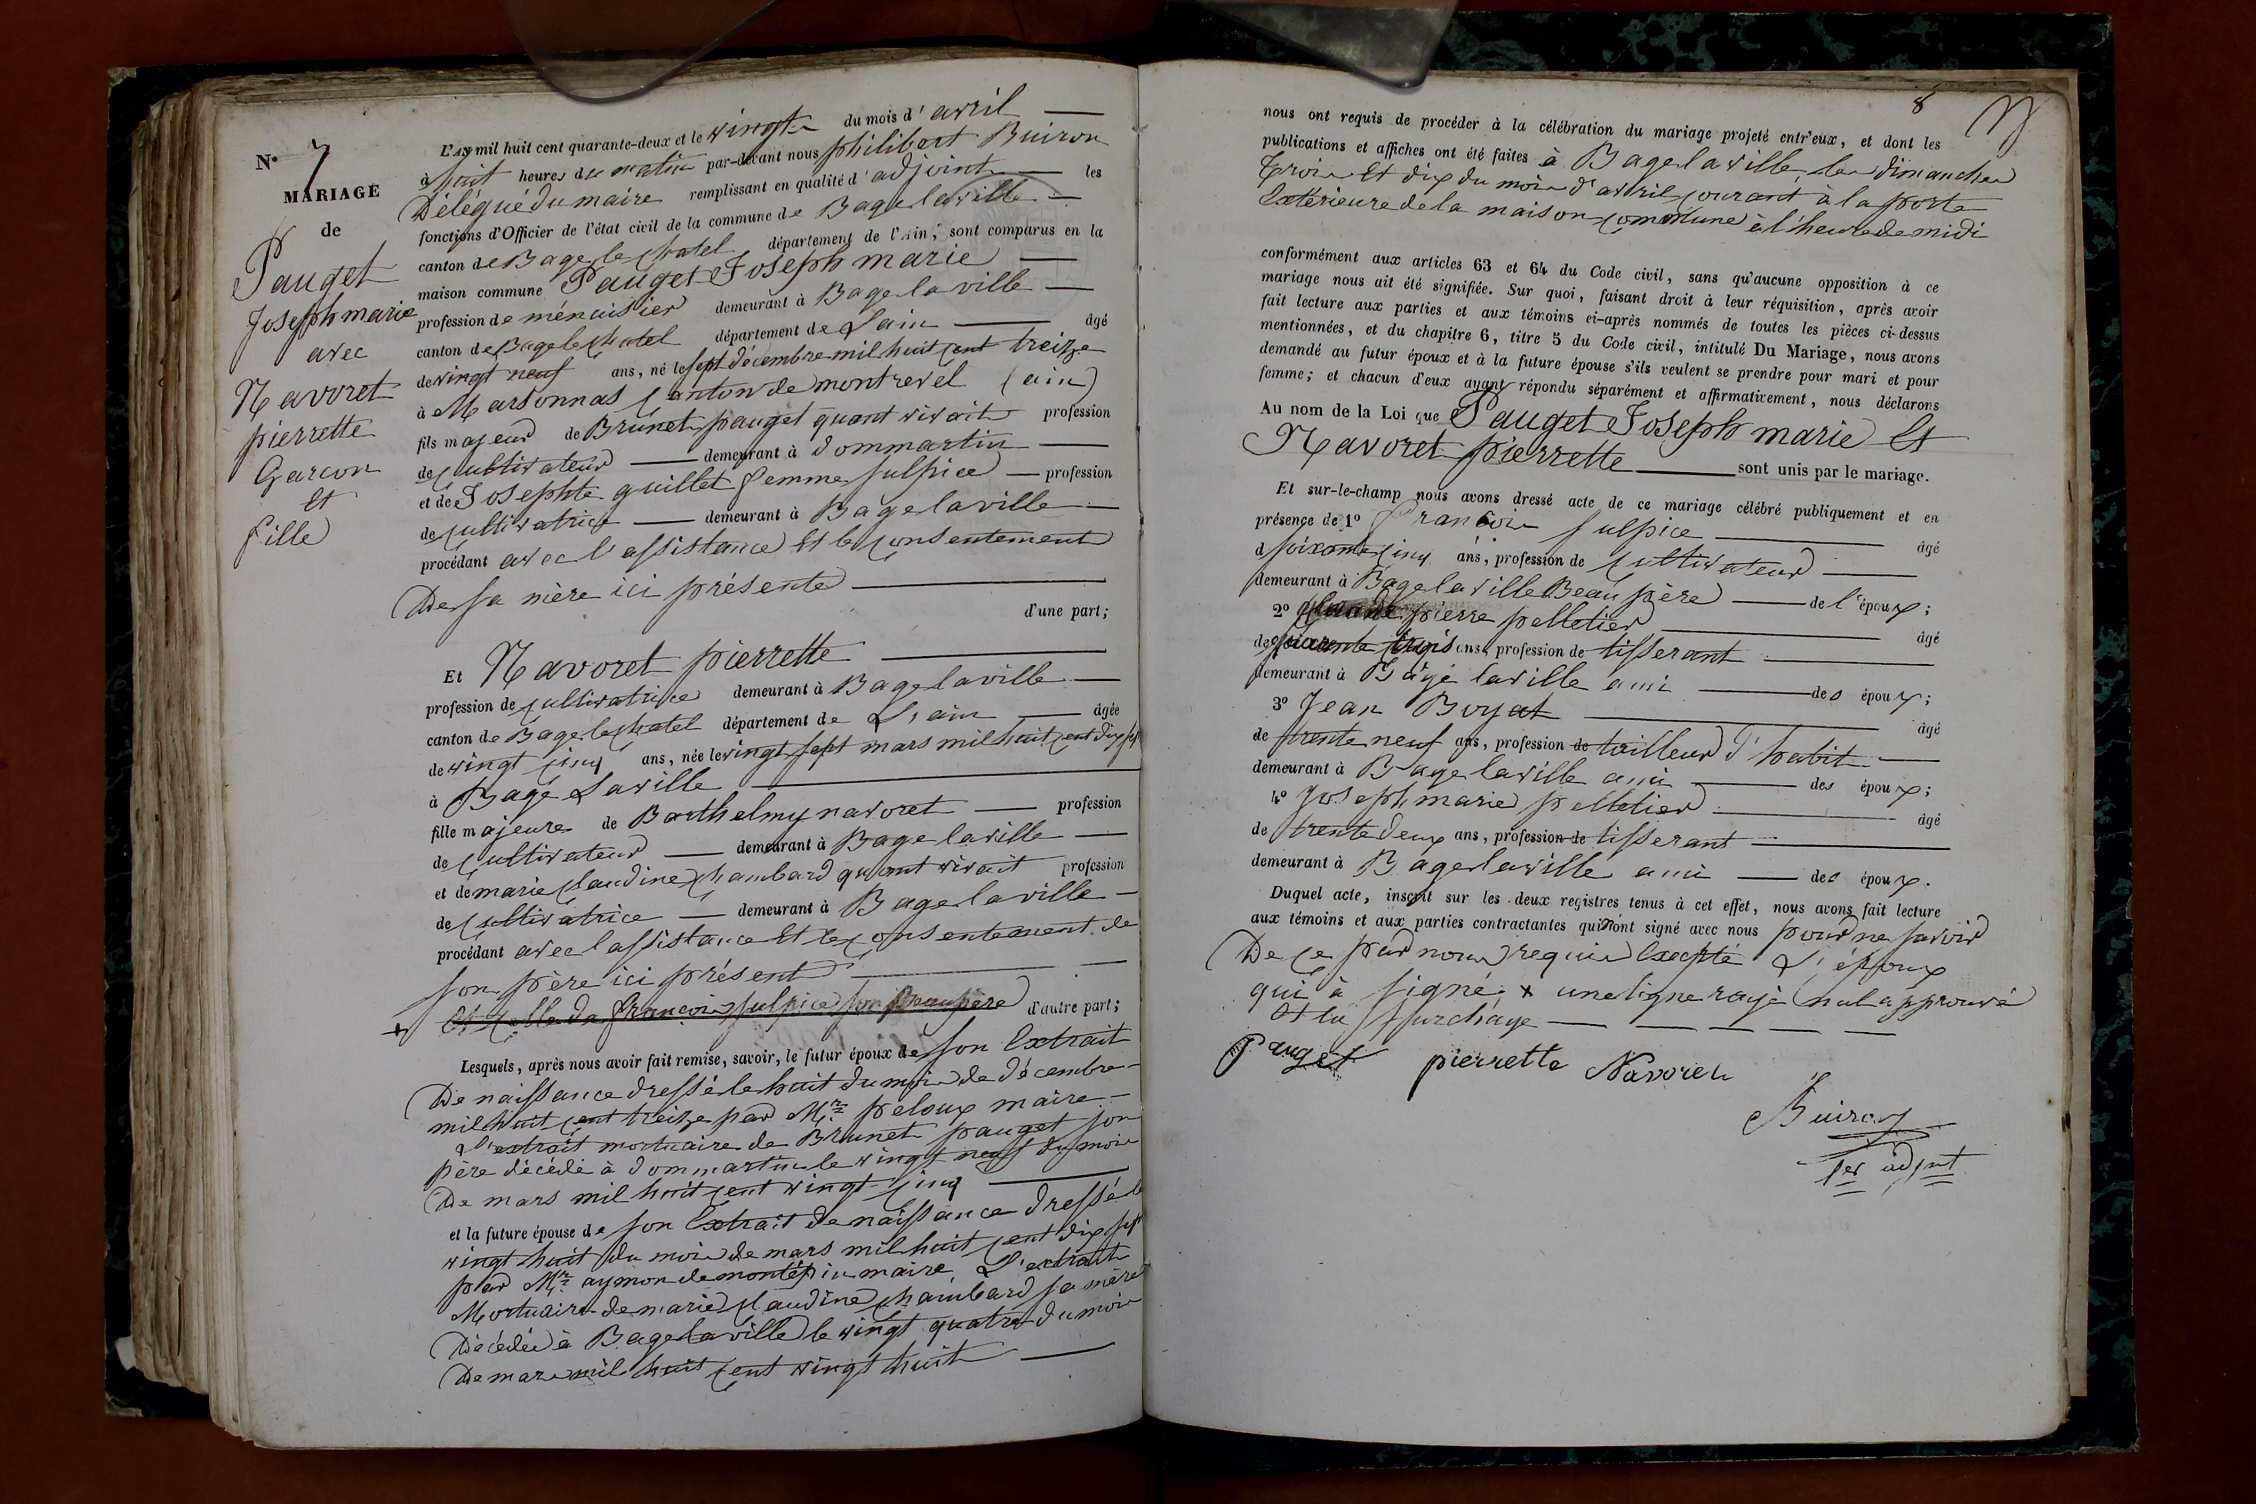 N° 7
MARIAGE
de
Pauget
Joseph marie
avec
Navoret
pierrette
Garcon
et
fille
L'AN mil huit cent quarante-deux et le vingt du mois d'avril
à huit heures du matin par-devant nous philibert Buiron
Délégué du maire remplissant en qualité d'adjoint les
fonctions d'Officier de l'état civil de la commune de Bage laville
canton de Bage le chatel département de l'Ain; sont comparus en la
maison commune Pauget Joseph marie
profession de ménuisier demeurant à Bage laville
canton de Bage le chatel département de Lain âgé
de vingt neuf ans, né le sept décembre mil huit cent treize
à Marsonnas canton de montrevel (ain)
fils majeur de Brunet pauget quant vivait profession
de cultivateur demeurant à dommartin
et de Josephte guillet femme sulpice profession
de cultivatrice demeurant à Bage laville
procédant avec l'assistance et le consentement
De sa mère ici présente
d'une part;
Et Navoret pierrette
profession de cultivatrice demeurant à Bage laville
canton de Bage le chatel département de L'ain âgée
de vingt cinq ans, née le vingt sept mars mil huit cent dix sept
à Bagé Laville
fille majeure de Barthelmy navoret profession
de cultivateur demeurant à Bage laville
et de marie claudine chambard quant vivait profession
de cultivatrice demeurant à Bage laville
procédant avec l'assistance et le consentement de
son père ici présent
+ et celle de françois sulpice son beaupère d'autre part;
Lesquels, après nous avoir fait remise, savoir, le futur époux de son Extrait
De naissance dressé le huit du mois de décembre
mil huit cent treize par Mr peloux maire
L'extrait mortuaire de Brunet pauget son
père décédé à dommartin le vingt neuf du mois
De mars mil huit cent vingt cinq
et la future épouse de son Extrait de naissance dressé le
vingt huit du mois de mars mil huit cent dix sept
par Mr aymon de montépin maire L'extrait
Mortuaire de marie claudine chambard sa mère
Décédée à Bage laville le vingt quatre du mois
De mars mil huit cent vingt huit
8
nous ont requis de procéder à la célébration du mariage projeté entr'eux, et dont les
publications et affiches ont été faites à Bage laville les dimanches
trois et dix du mois d'avril courant à la porte
Extérieure de la maison commune à l'heure de midi
conformément aux articles 63 et 64 du Code civil, sans qu'aucune opposition à ce
mariage nous ait été signifiée. Sur quoi, faisant droit à leur réquisition, après avoir
fait lecture aux parties et aux témoins ci-après nommés de toutes les pièces ci-dessus
mentionnées, et du chapitre 6, titre 5 du Code civil, intitulé Du Mariage, nous avons
demandé au futur époux et à la future épouse s'ils veulent se prendre pour mari et pour
femme; et chacun d'eux ayant répondu séparément et affirmativement, nous déclarons
Au nom de la Loi que Pauget Joseph marie Et
Navoret pierrette sont unis par le mariage.
Et sur-le-champ nous avons dressé acte de ce mariage célébré publiquement et en
présence de 1° françois sulpice âgé
d soixante cinq ans, profession de cultivateur
demeurant à Bage laville Beau père de l'époux;
2° pierre pelletier âgé
de quarente trois ans, profession de tisserant
demeurant à Bagé laville ami des époux;
3° Jean Boyat âgé
de trente neuf ans, profession de tailleur d'habit
demeurant à Bage laville ami des époux;
4° Joseph marie pelletier âgé
de trente deux ans, profession de tisserant
demeurant à Bage laville ami des époux.
Duquel acte, inscrit sur les deux registres tenus à cet effet, nous avons fait lecture
aux témoins et aux parties contractantes qui n'ont signé avec nous pour ne savoir
De ce par nous requis Excepté L'époux
qui à signé + une ligne rayé nul approuvé
et la surchage
Pauget pierrette Navoret
Buiron
1er adjnt